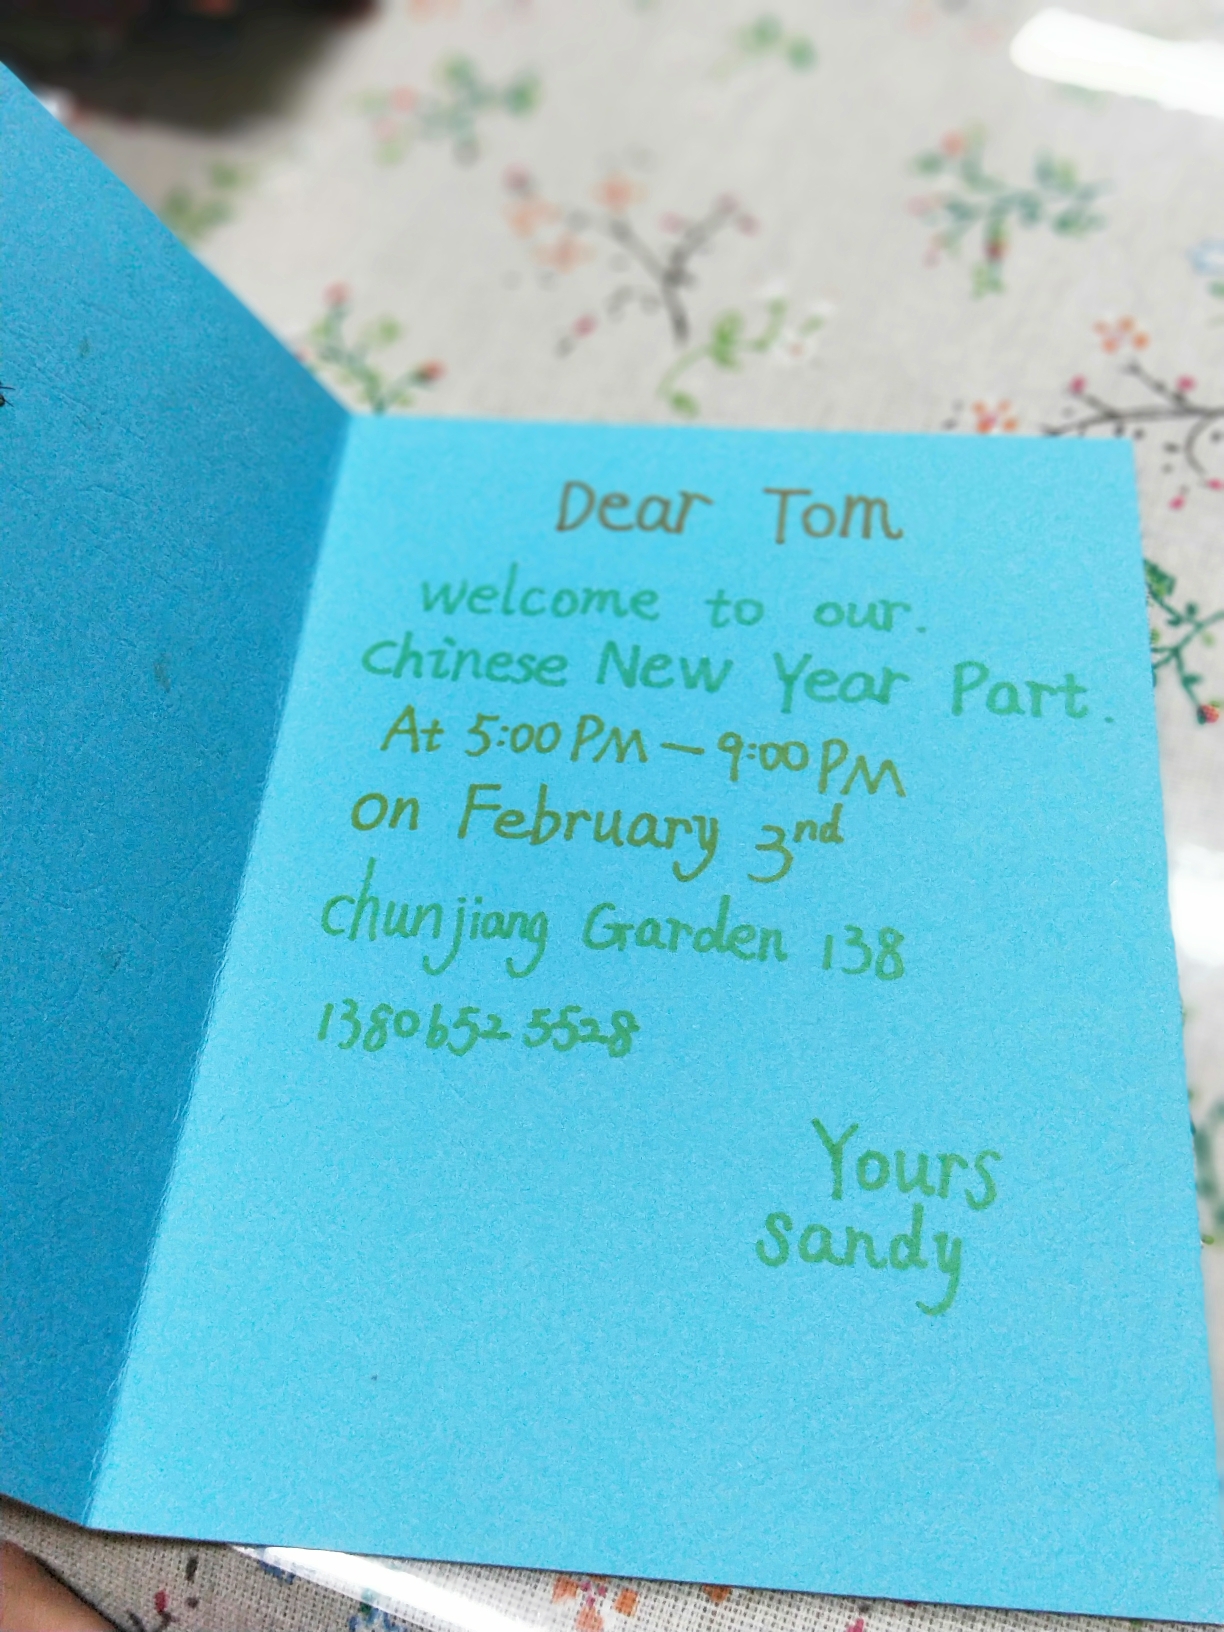 Dear Tom
welcome to our.
Chinese New Year Part.
At 5:00 PM — 9:00 PM
on February 3nd
chunjiang Garden 138
13806525528
Yours
sandy